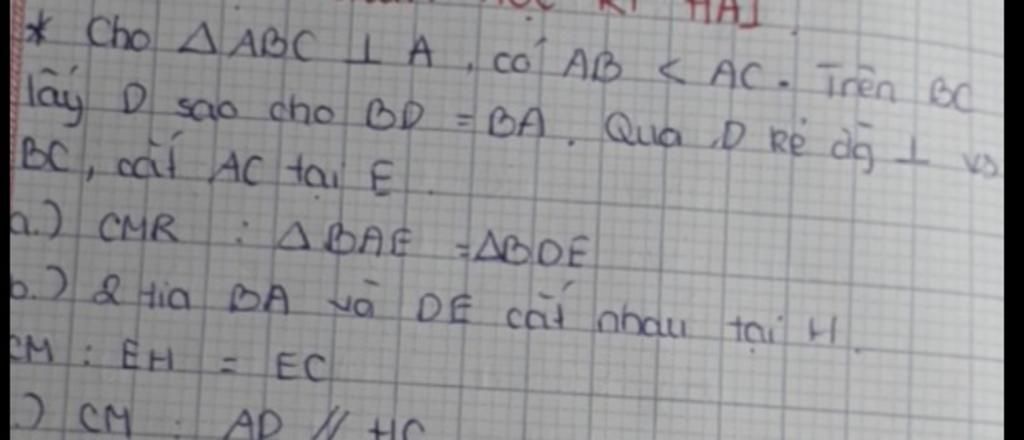 HAI
* Cho △ABC ⊥ A, có AB < AC. Trên BC
lấy D sao cho BD = BA. Qua D kẻ đg ⊥ vs
BC, cắt AC tại E.
a.) CMR : △BAE = △BDE
b.) 2 tia BA và DE cắt nhau tại H.
CM : EH = EC
.) CM : AD // HC